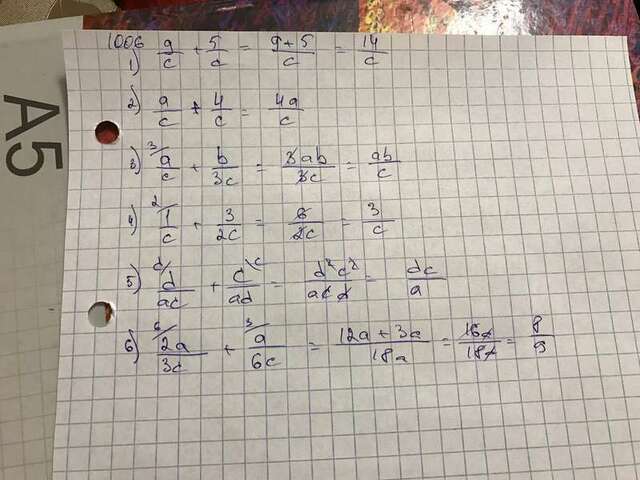 A5
1006
1) 9/c + 5/c = 9+5/c = 14/c
2) a/c + 4/c = 4a/c
3) 3/ a/c + b/3c = 3ab/3c = ab/c
4) 2/ 1/c + 3/2c = 6/2c = 3/c
5) d/ d/ac + c/ad = d²c²/acd = dc/a
6) 6/ 2a/3c + 3/ a/6c = 12a+3a/18a =